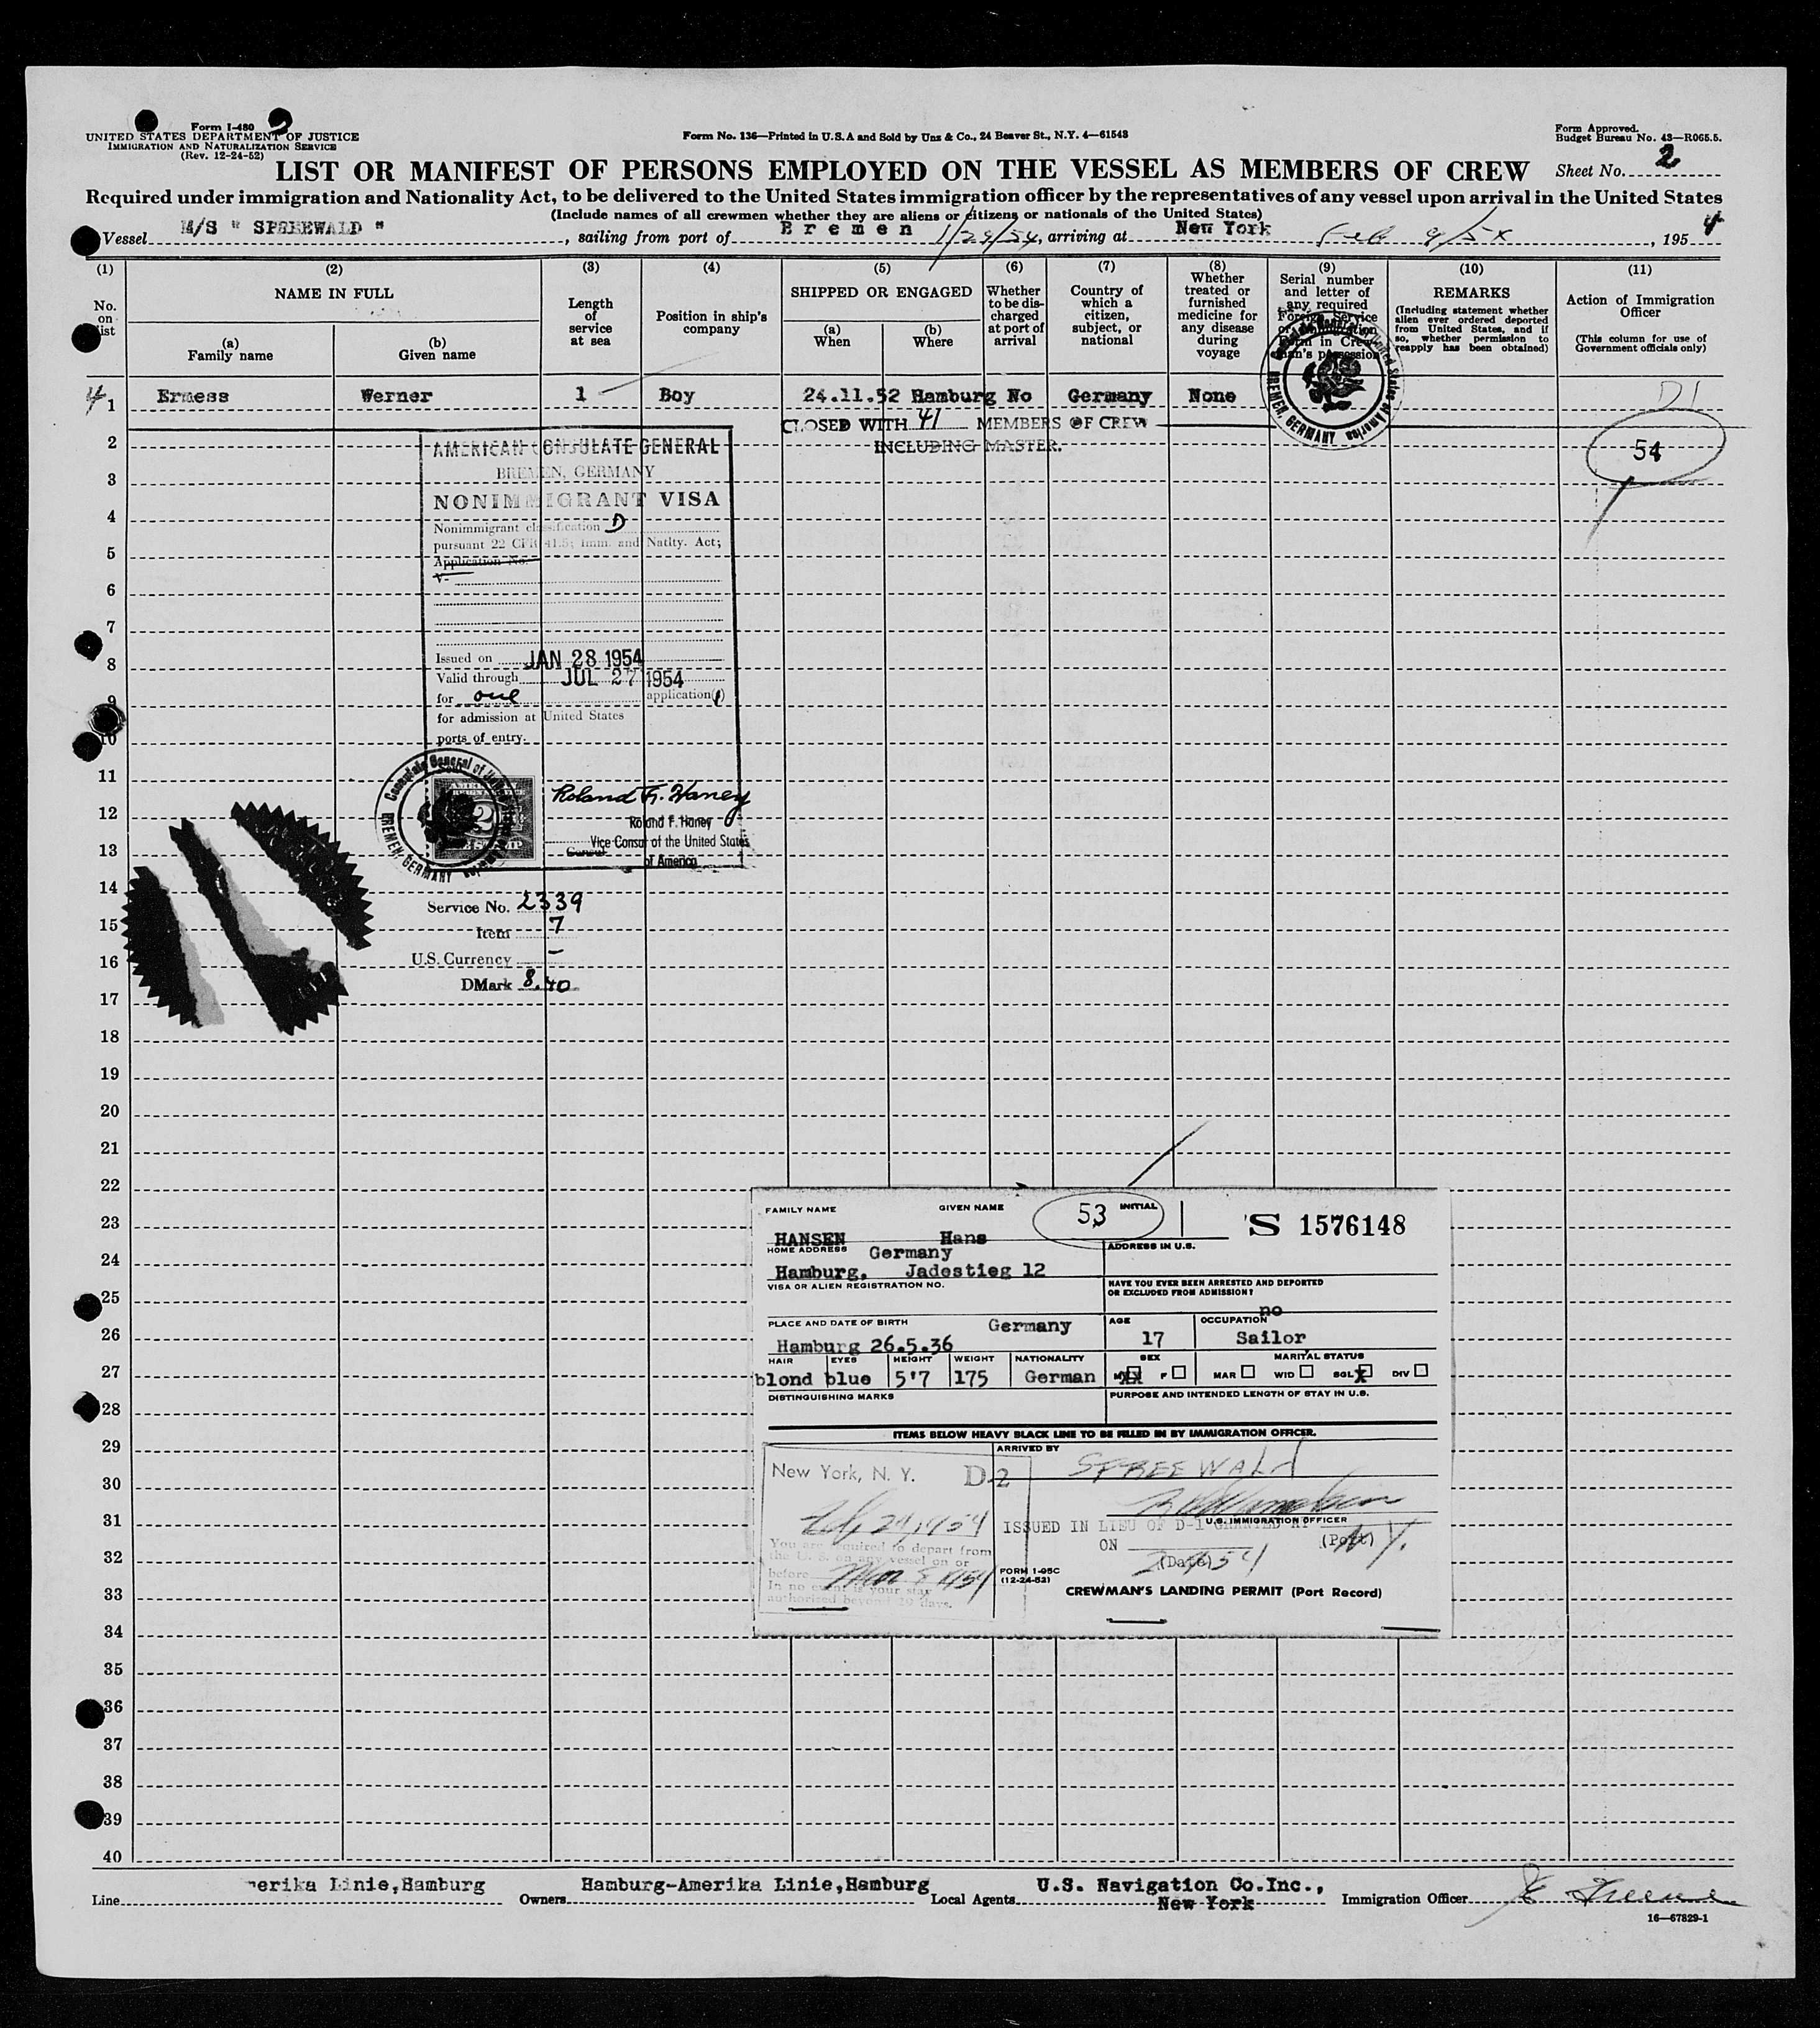 Form I-480
UNITED STATES DEPARTMENT OF JUSTICE
IMMIGRATION AND NATURALIZATION SERVICE
(Rev. 12-24-52)
Form No. 136—Printed in U.S.A and Sold by Unz & Co., 24 Beaver St., N.Y. 4—61548
Form Approved.
Budget Bureau No. 43—R065.5.
LIST OR MANIFEST OF PERSONS EMPLOYED ON THE VESSEL AS MEMBERS OF CREW
Sheet No. 2
Required under immigration and Nationality Act, to be delivered to the United States immigration officer by the representatives of any vessel upon arrival in the United States
(Include names of all crewmen whether they are aliens or citizens or nationals of the United States)
Vessel M/S " SPREEWALD ", sailing from port of Bremen 1/29/54, arriving at New York Feb 9/54, 1954
(1) (2) (3) (4) (5) (6) (7) (8) (9) (10) (11)
No. on list
NAME IN FULL
(a) Family name
(b) Given name
Length of service at sea
Position in ship's company
SHIPPED OR ENGAGED
(a) When
(b) Where
Whether to be discharged at port of arrival
Country of which a citizen, subject, or national
Whether treated or furnished medicine for any disease during voyage
Serial number and letter of any required Foreign Service or Immigration Form in Crewman's possession
REMARKS
(Including statement whether alien ever ordered deported from United States, and if so, whether permission to reapply has been obtained)
Action of Immigration Officer
(This column for use of Government officials only)
4 1 Ermess Werner 1 Boy 24.11.52 Hamburg No Germany None D1
CLOSED WITH 41 MEMBERS OF CREW
INCLUDING MASTER.
54
Consulate General of the United States of America
BREMEN, GERMANY
2
3
4
5
6
7
8
9
10
11
12
13
14
15
16
17
18
19
20
21
22
23
24
25
26
27
28
29
30
31
32
33
34
35
36
37
38
39
40
AMERICAN CONSULATE GENERAL
BREMEN, GERMANY
NONIMMIGRANT VISA
Nonimmigrant classification D
pursuant 22 CFR 41.5; Imm. and Natlty. Act;
Application No.
V-
Issued on JAN 28 1954
Valid through JUL 27 1954
for one application(s)
for admission at United States
ports of entry.
Consulate General of
BREMEN, GERMANY
Roland F. Haney
Roland F. Haney
Vice Consul of the United States
Consul
of America
Service No. 2339
Item 7
U.S. Currency –
DMark 8.40
FAMILY NAME GIVEN NAME INITIAL
53
S 1576148
HANSEN Hans
HOME ADDRESS Germany
ADDRESS IN U.S.
Hamburg, Jadestieg 12
VISA OR ALIEN REGISTRATION NO.
HAVE YOU EVER BEEN ARRESTED AND DEPORTED
OR EXCLUDED FROM ADMISSION?
no
PLACE AND DATE OF BIRTH Germany
AGE OCCUPATION
Hamburg 26.5.36 17 Sailor
HAIR EYES HEIGHT WEIGHT NATIONALITY SEX MARITAL STATUS
blond blue 5'7 175 German M F MAR WID SGL DIV
DISTINGUISHING MARKS
PURPOSE AND INTENDED LENGTH OF STAY IN U.S.
ITEMS BELOW HEAVY BLACK LINE TO BE FILLED IN BY IMMIGRATION OFFICER.
ARRIVED BY
SPREEWALD
New York, N. Y. D-2
Feb 24, 1954
You are required to depart from
the U. S. on any vessel on or
before Mar 5 1954
In no event is your stay
authorized beyond 29 days.
U.S. IMMIGRATION OFFICER
ISSUED IN LIEU OF D-1 GRANTED AT N.Y.
(Port)
ON
(Date)
FORM I-95C
(12-24-52)
CREWMAN'S LANDING PERMIT (Port Record)
Line erika Linie,Hamburg
Owners Hamburg-Amerika Linie,Hamburg
Local Agents U.S. Navigation Co.Inc.,
New York
Immigration Officer Greene
16—67829-1